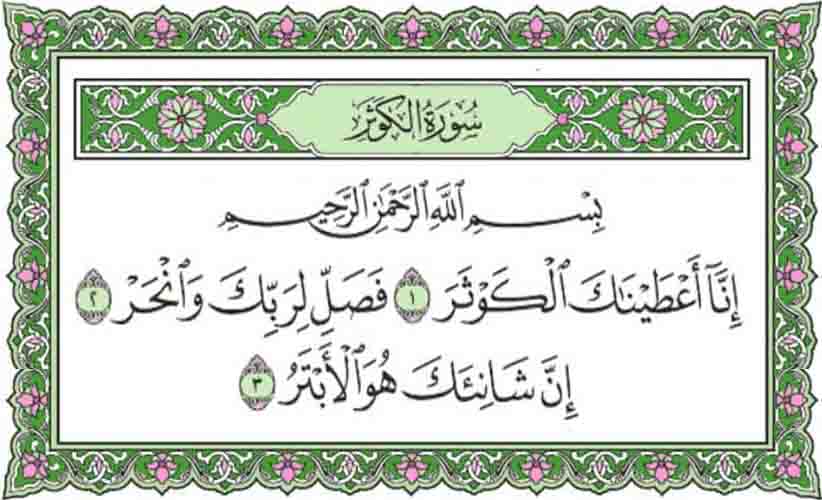 سُورَةُ الكَوْثَرِ
بِسْمِ ٱللَّهِ ٱلرَّحْمَٰنِ ٱلرَّحِيمِ
إِنَّآ أَعْطَيْنَاكَ ٱلْكَوْثَرَ ١ فَصَلِّ لِرَبِّكَ وَٱنْحَرْ ٢
إِنَّ شَانِئَكَ هُوَ ٱلْأَبْتَرُ ٣